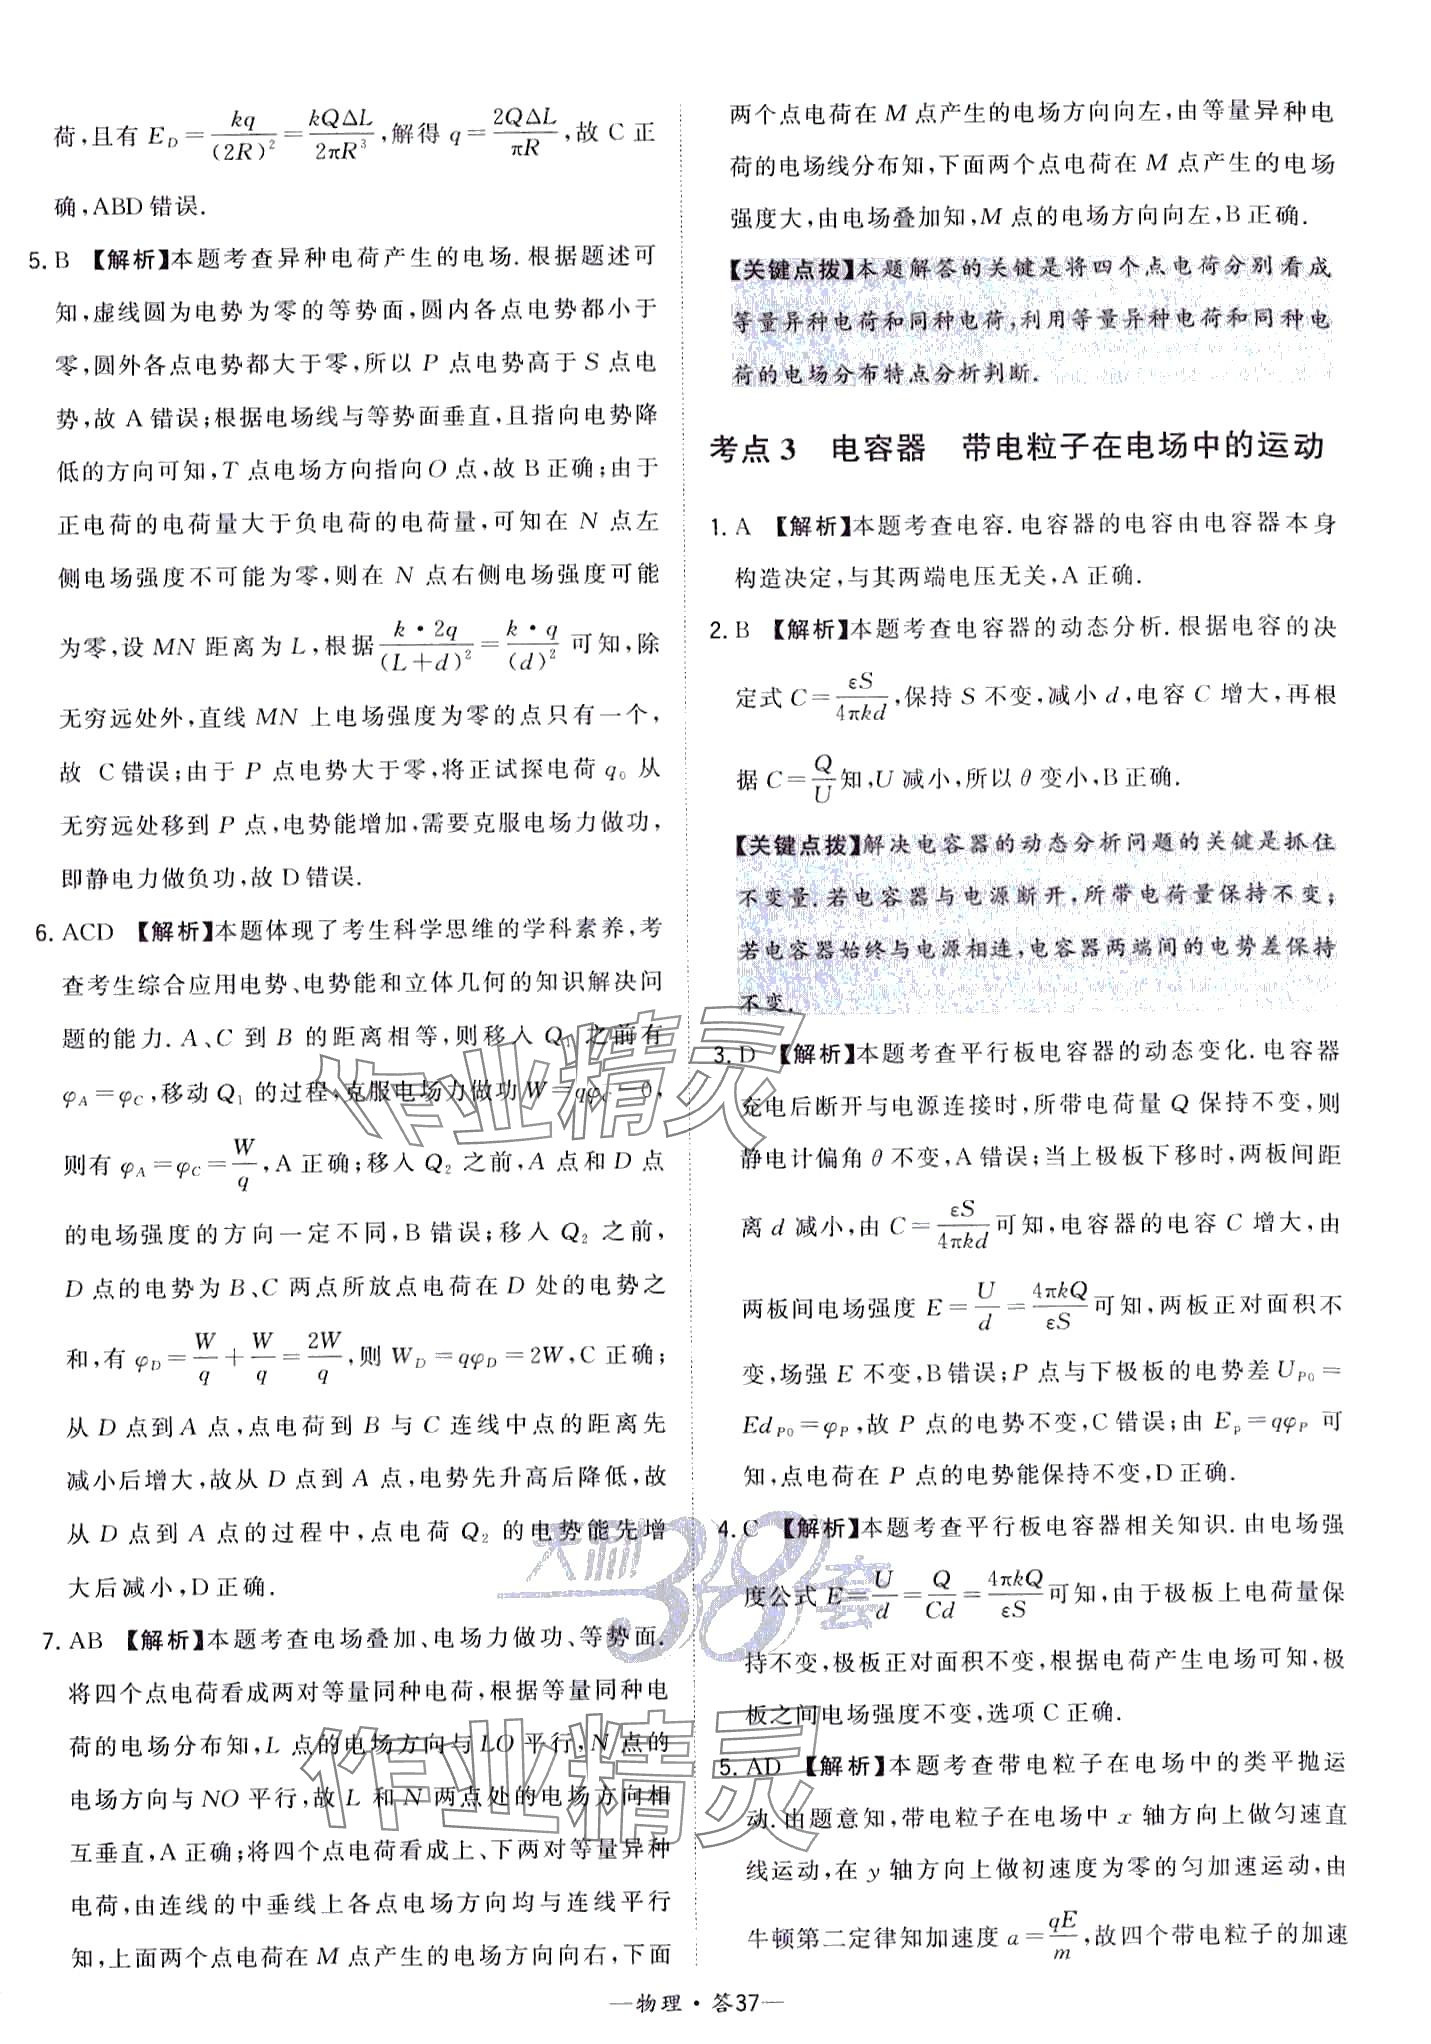 荷,且有 E_D=kq/(2R)²=kQΔL/2πR³,解得 q=2QΔL/πR,故 C 正
确,ABD 错误.
5. B 【解析】本题考查异种电荷产生的电场.根据题述可
知,虚线圆为电势为零的等势面,圆内各点电势都小于
零,圆外各点电势都大于零,所以 P 点电势高于 S 点电
势,故 A 错误;根据电场线与等势面垂直,且指向电势降
低的方向可知,T 点电场方向指向O 点,故 B 正确;由于
正电荷的电荷量大于负电荷的电荷量,可知在 N 点左
侧电场强度不可能为零,则在 N 点右侧电场强度可能
为零,设 MN 距离为 L,根据k·2q/(L+d)²=k·q/(d)²可知,除
无穷远处外,直线 MN 上电场强度为零的点只有一个,
故 C 错误;由于 P 点电势大于零,将正试探电荷 q₀ 从
无穷远处移到 P 点,电势能增加,需要克服电场力做功,
即静电力做负功,故 D 错误.
6. ACD 【解析】本题体现了考生科学思维的学科素养,考
查考生综合应用电势、电势能和立体几何的知识解决问
题的能力.A、C 到 B 的距离相等,则移入 Q₁ 之前有
φ_A=φ_C,移动 Q₁ 的过程,克服电场力做功W=qφ_C-0,
则有 φ_A=φ_C=W/q,A 正确;移入 Q₂ 之前,A 点和 D 点
的电场强度的方向一定不同,B 错误;移入 Q₂ 之前,
D 点的电势为 B、C 两点所放点电荷在 D 处的电势之
和,有 φ_D=W/q+W/q=2W/q,则 W_D=qφ_D=2W,C 正确;
从 D 点到 A 点,点电荷到 B 与 C 连线中点的距离先
减小后增大,故从 D 点到 A 点,电势先升高后降低,故
从 D 点到 A 点的过程中,点电荷 Q₂ 的电势能先增
大后减小,D 正确.
7. AB 【解析】本题考查电场叠加、电场力做功、等势面.
将四个点电荷看成两对等量同种电荷,根据等量同种电
荷的电场分布知,L 点的电场方向与LO 平行,N 点的
电场方向与 NO 平行,故 L 和 N 两点处的电场方向相
互垂直,A 正确;将四个点电荷看成上、下两对等量异种
电荷,由连线的中垂线上各点电场方向均与连线平行
知,上面两个点电荷在 M 点产生的电场方向向右,下面
两个点电荷在 M 点产生的电场方向向左,由等量异种电
荷的电场线分布知,下面两个点电荷在 M 点产生的电场
强度大,由电场叠加知,M 点的电场方向向左,B 正确.
【关键点拨】本题解答的关键是将四个点电荷分别看成
等量异种电荷和同种电荷,利用等量异种电荷和同种电
荷的电场分布特点分析判断.
考点 3 电容器 带电粒子在电场中的运动
1. A 【解析】本题考查电容.电容器的电容由电容器本身
构造决定,与其两端电压无关,A 正确.
2. B 【解析】本题考查电容器的动态分析.根据电容的决
定式 C=εS/4πkd,保持 S 不变,减小 d,电容 C 增大,再根
据 C=Q/U知,U 减小,所以 θ 变小,B 正确.
【关键点拨】解决电容器的动态分析问题的关键是抓住
不变量.若电容器与电源断开,所带电荷量保持不变;
若电容器始终与电源相连,电容器两端间的电势差保持
不变.
3. D 【解析】本题考查平行板电容器的动态变化.电容器
充电后断开与电源连接时,所带电荷量 Q 保持不变,则
静电计偏角 θ 不变,A 错误;当上极板下移时,两板间距
离 d 减小,由 C=εS/4πkd可知,电容器的电容 C 增大,由
两板间电场强度 E=U/d=4πkQ/εS可知,两板正对面积不
变,场强 E 不变,B 错误;P 点与下极板的电势差 U_P0=
Ed_P0=φ_P,故 P 点的电势不变,C 错误;由 E_p=qφ_P 可
知,点电荷在 P 点的电势能保持不变,D 正确.
4. C 【解析】本题考查平行板电容器相关知识.由电场强
度公式 E=U/d=Q/Cd=4πkQ/εS可知,由于极板上电荷量保
持不变,极板正对面积不变,根据电荷产生电场可知,极
板之间电场强度不变,选项 C 正确.
5. AD 【解析】本题考查带电粒子在电场中的类平抛运
动.由题意知,带电粒子在电场中 x 轴方向上做匀速直
线运动,在 y 轴方向上做初速度为零的匀加速运动,由
牛顿第二定律知加速度 a=qE/m,故四个带电粒子的加速
作业精灵
天利38套
作业精灵
—物理·答37—